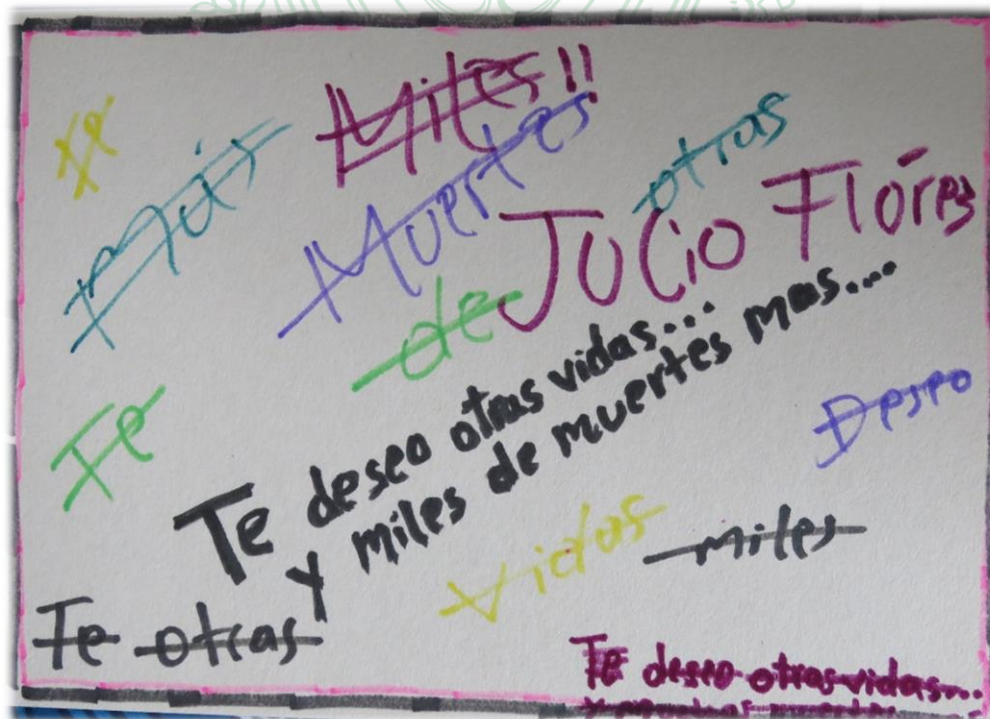 Te
Más
Miles!!
Muertes
otras
Julio Flóres
de
Te
Te deseo otras vidas...
y miles de muertes mas...
Deseo
Vidas
miles
Te otras
Te deseo otras vidas...